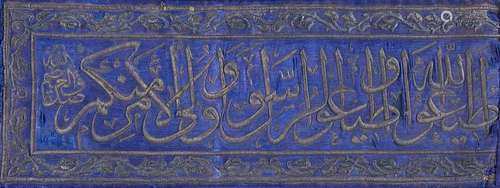 اطیعوا الله و اطیعوا الرسول و اولی الامر منکم